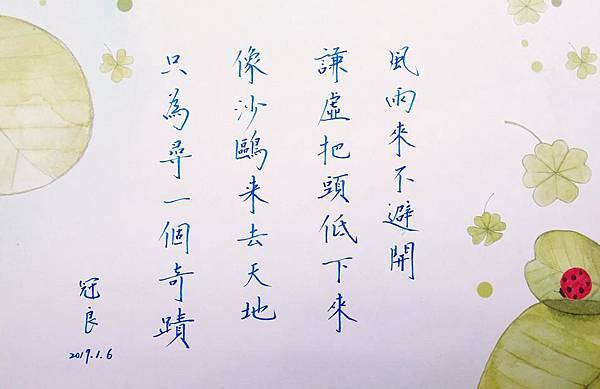 風雨來不避開
謙虛把頭低下來
像沙鷗来去天地
只為尋一個奇蹟
冠良
2019.1.6